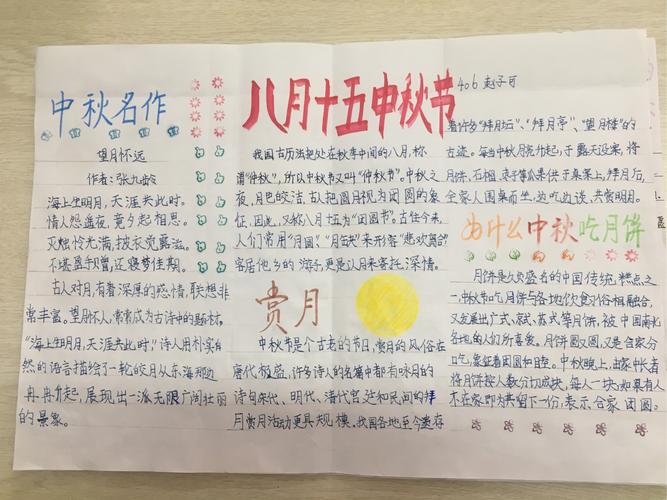 中秋名作
望月怀远
作者:张九龄
海上生明月,天涯共此时。
情人怨遥夜,竟夕起相思。
灭烛怜光满,披衣觉露滋。
不堪盈手赠,还寝梦佳期。
古人对月,有着深厚的感情,联想非
常丰富。望月怀人,常常成为古诗中的题材。
“海上生明月,天涯共此时,”诗人用朴实自
然的语言描绘了一轮皓月从东海那边
冉冉升起,展现出一派无限广阔壮丽
的景象。
八月十五中秋节
406 赵子可
我国古历法把处在秋季中间的八月,称
谓“仲秋”,所以中秋节又叫“仲秋节”。中秋之
夜,月色皎洁,古人把圆月视为团圆的象
征,因此,又称八月十五为“团圆节”。古往今来,
人们常用“月圆”、“月缺”来形容“悲欢离合”
客居他乡的游子,更是以月来寄托深情。
赏月
中秋节是个古老的节日,赏月的风俗在
唐代极盛,许多诗人的名篇中都有咏月的
诗句宋代、明代、清代宫廷和民间的拜
月赏月活动更具规模。我国各地至今遗存
着许多“拜月坛”、“拜月亭”、“望月楼”的
古迹。每当中秋月亮升起,于露天设案,将
月饼、石榴、枣子等瓜果供于桌案上,拜月后,
全家人围桌而坐,边吃边谈,共赏明月。
为什么中秋吃月饼
月饼是久负盛名的中国传统糕点之
一,中秋节吃月饼与各地饮食习俗相融合,
又发展出广式、京式、苏式等月饼,被中国南北
各地的人们所喜爱。月饼圆又圆,又是合家分
吃,象征着团圆和睦。中秋晚上,由家中长者
将月饼按人数分切成块,每人一块,如果有人
不在家即为其留下一份,表示合家团圆。